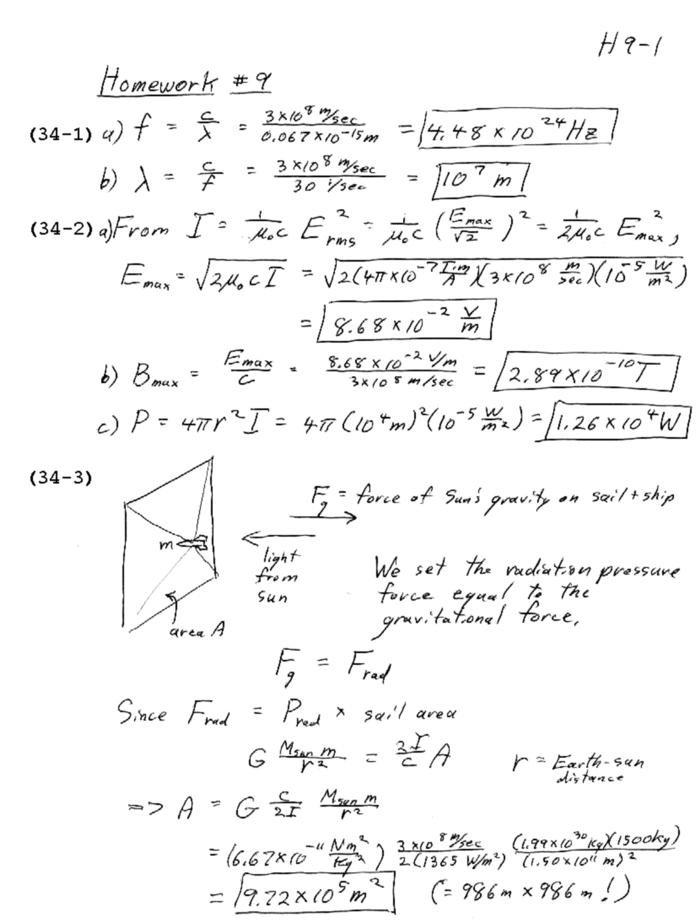 H9-1
Homework #9
(34-1) a) f = c/λ = 3×10^8 m/sec / 0.067×10^-15 m = 4.48×10^24 Hz
b) λ = c/f = 3×10^8 m/sec / 30 1/sec = 10^7 m
(34-2) a) From I = 1/μ₀c E_rms^2 = 1/μ₀c (E_max/√2)^2 = 1/2μ₀c E_max^2,
E_max = √2μ₀cI = √2(4π×10^-7 T·m/A)(3×10^8 m/sec)(10^-5 W/m²)
= 8.68×10^-2 V/m
b) B_max = E_max/c = 8.68×10^-2 V/m / 3×10^8 m/sec = 2.89×10^-10 T
c) P = 4πr²I = 4π(10^4 m)²(10^-5 W/m²) = 1.26×10^4 W
(34-3)
F_g = force of Sun's gravity on sail + ship
m
light
from
sun
area A
We set the radiation pressure
force equal to the
gravitational force,
F_g = F_rad
Since F_rad = P_rad × sail area
G M_sun m / r² = 2I/c A
r = Earth-sun
distance
=> A = G c/2I M_sun m / r²
= (6.67×10^-11 Nm²/kg²) 3×10^8 m/sec / 2(1365 W/m²) (1.99×10^30 kg)(1500kg) / (1.50×10^11 m)²
= 9.72×10^5 m² (= 986m × 986m!)